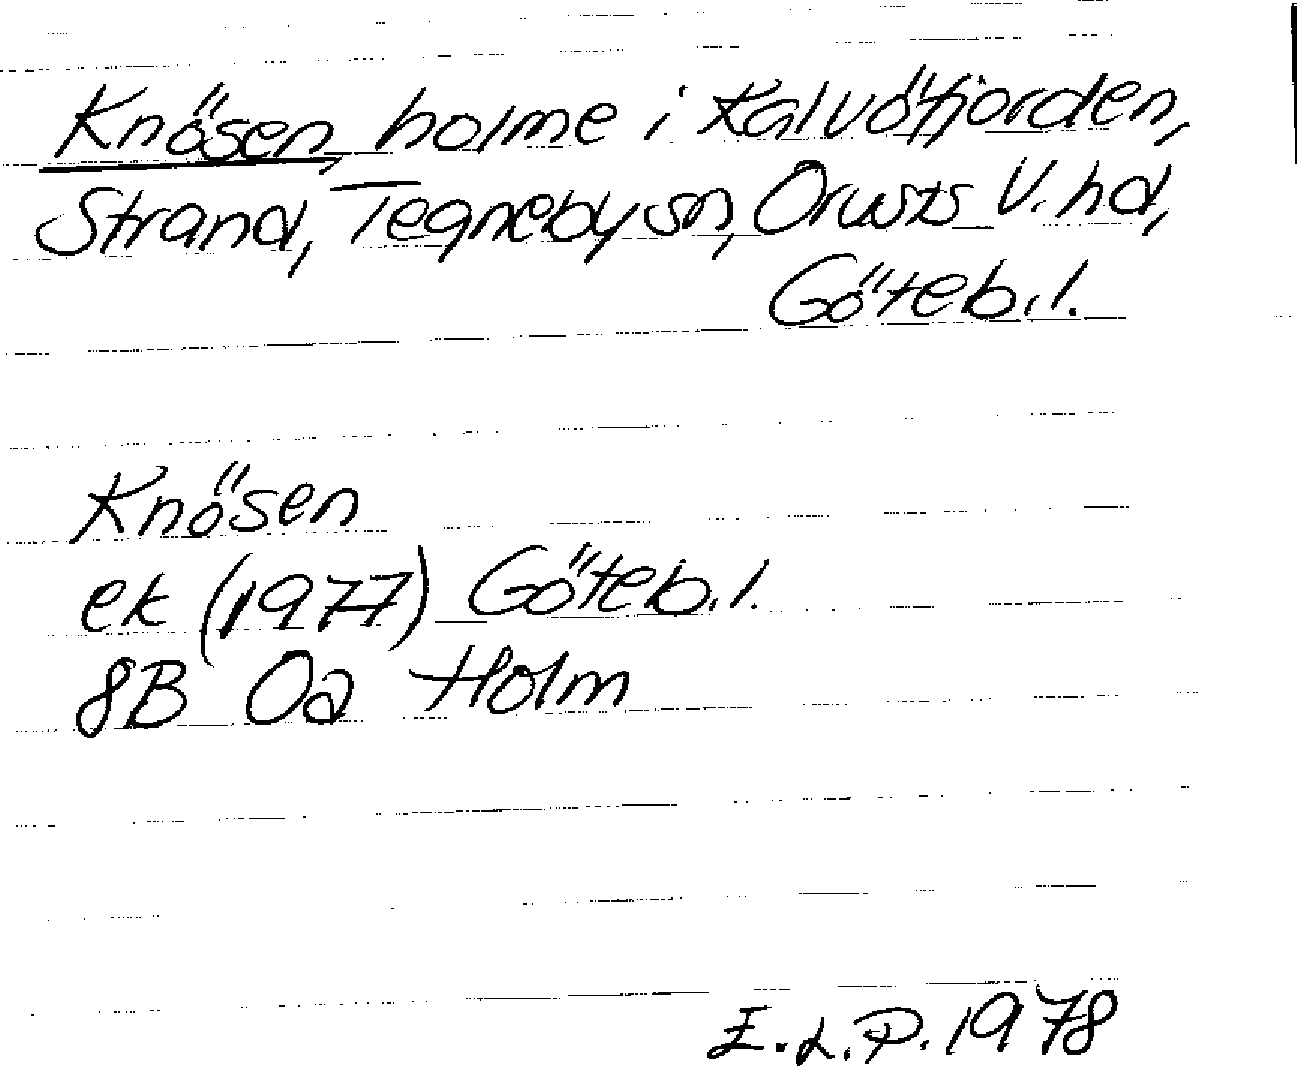 Knösen, holme i Kalvöfjorden,
Strand, Tegneby sn, Orusts V. hd,
Göteb. l.
Knösen
ek (1977) Göteb. l.
8B 0a Holm
E. L. P. 1978